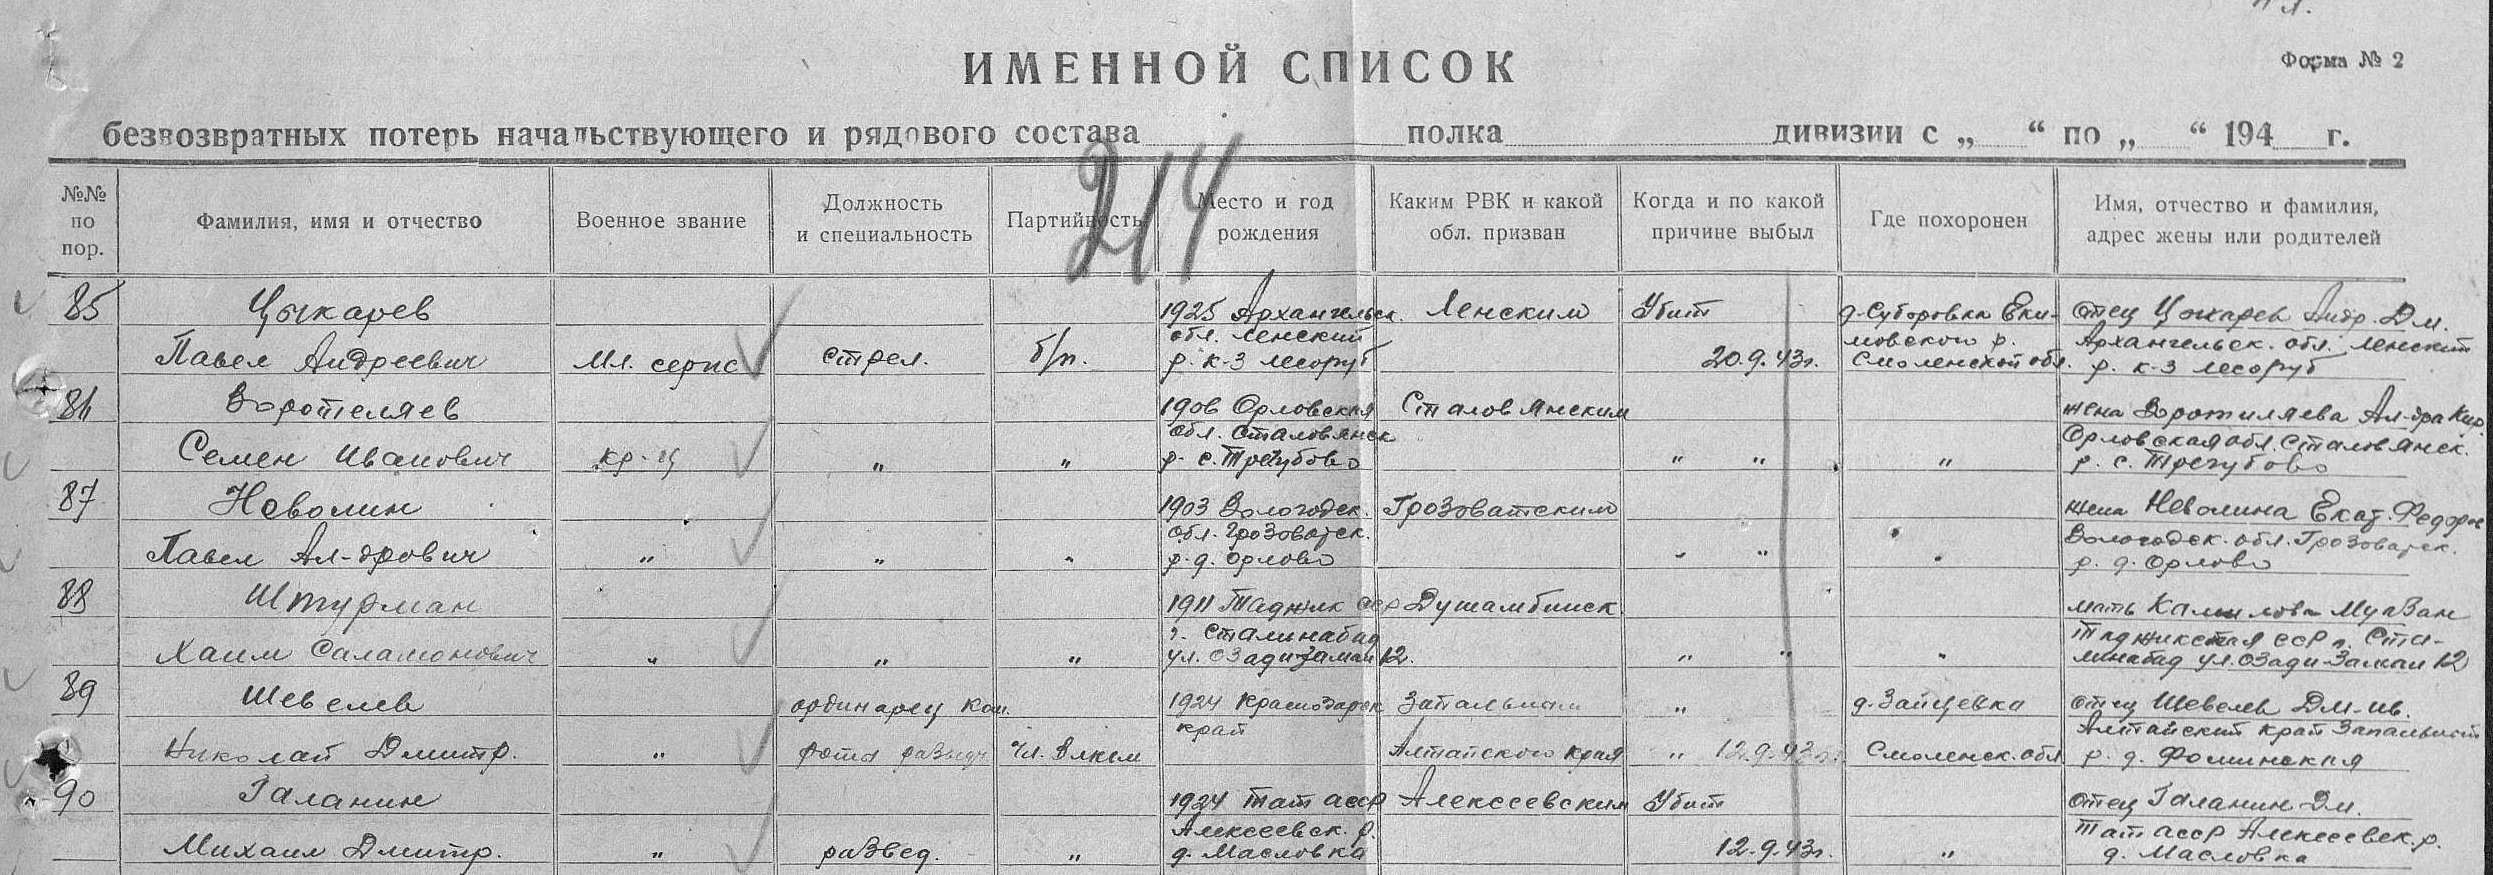 ИМЕННОЙ СПИСОК
Форма № 2
безвозвратных потерь начальствующего и рядового состава полка дивизии с „ “ по „ “ 194 г.
214
№№ по пор.
Фамилия, имя и отчество
Военное звание
Должность и специальность
Партийность
Место и год рождения
Каким РВК и какой обл. призван
Когда и по какой причине выбыл
Где похоронен
Имя, отчество и фамилия, адрес жены или родителей
85 Цыкарев 1925 Архангельск. Ленским Убит д. Суборовка Еки- отец Цыкарев Андр. Дм.
обл. Ленский мовского р. Архангельск. обл. Ленский
Павел Андреевич Мл. серж стрел. б/п. р. к-з Лесоруб 20.9.43г. Смоленской обл. р. к-з Лесоруб
86 Воротеляев 1906 Орловская Сталовянским жена Воротиляева Ал-дра Кир.
обл. Становянск Орловская обл. Становянск.
Семен Иванович кр-ц „ „ р. с. Трегубово „ „ „ р. с. Трегубово
87 Неволин 1903 Вологодск. Грозоватским жена Неволина Екат. Федоров
обл. Грозоватск. Вологодск. обл. Грозоватск.
Павел Ал-дрович „ „ „ р. д. Орлово „ „ „ р. д. Орлово
88 Штурман 1911 Таджик сср Душамбинск мать Муаван
г. Сталинабад Таджикская ССР г. Ста-
Хаим Саламонович „ „ „ ул. Озади-Заман 12. „ „ „ линабад ул. Озади-Заман 12
89 Шевелев ординарец ком. 1924 Краснодарск Запальным „ д. Зайцевка отец Шевелев Дм-Ив.
край Алтайский край
Николай Дмитр. „ рота развед. Чл. Влксм Алтайского края „ 12.9.43г. Смоленск. обл р. д. Фоминская
90 Галанин 1924 Тат асср Алексеевским Убит отец Галанин Дм.
Алексеевск. р. Тат асср Алексеевск. р.
Михаил Дмитр. „ развед. „ д. Масловка 12.9.43г. „ д. Масловка